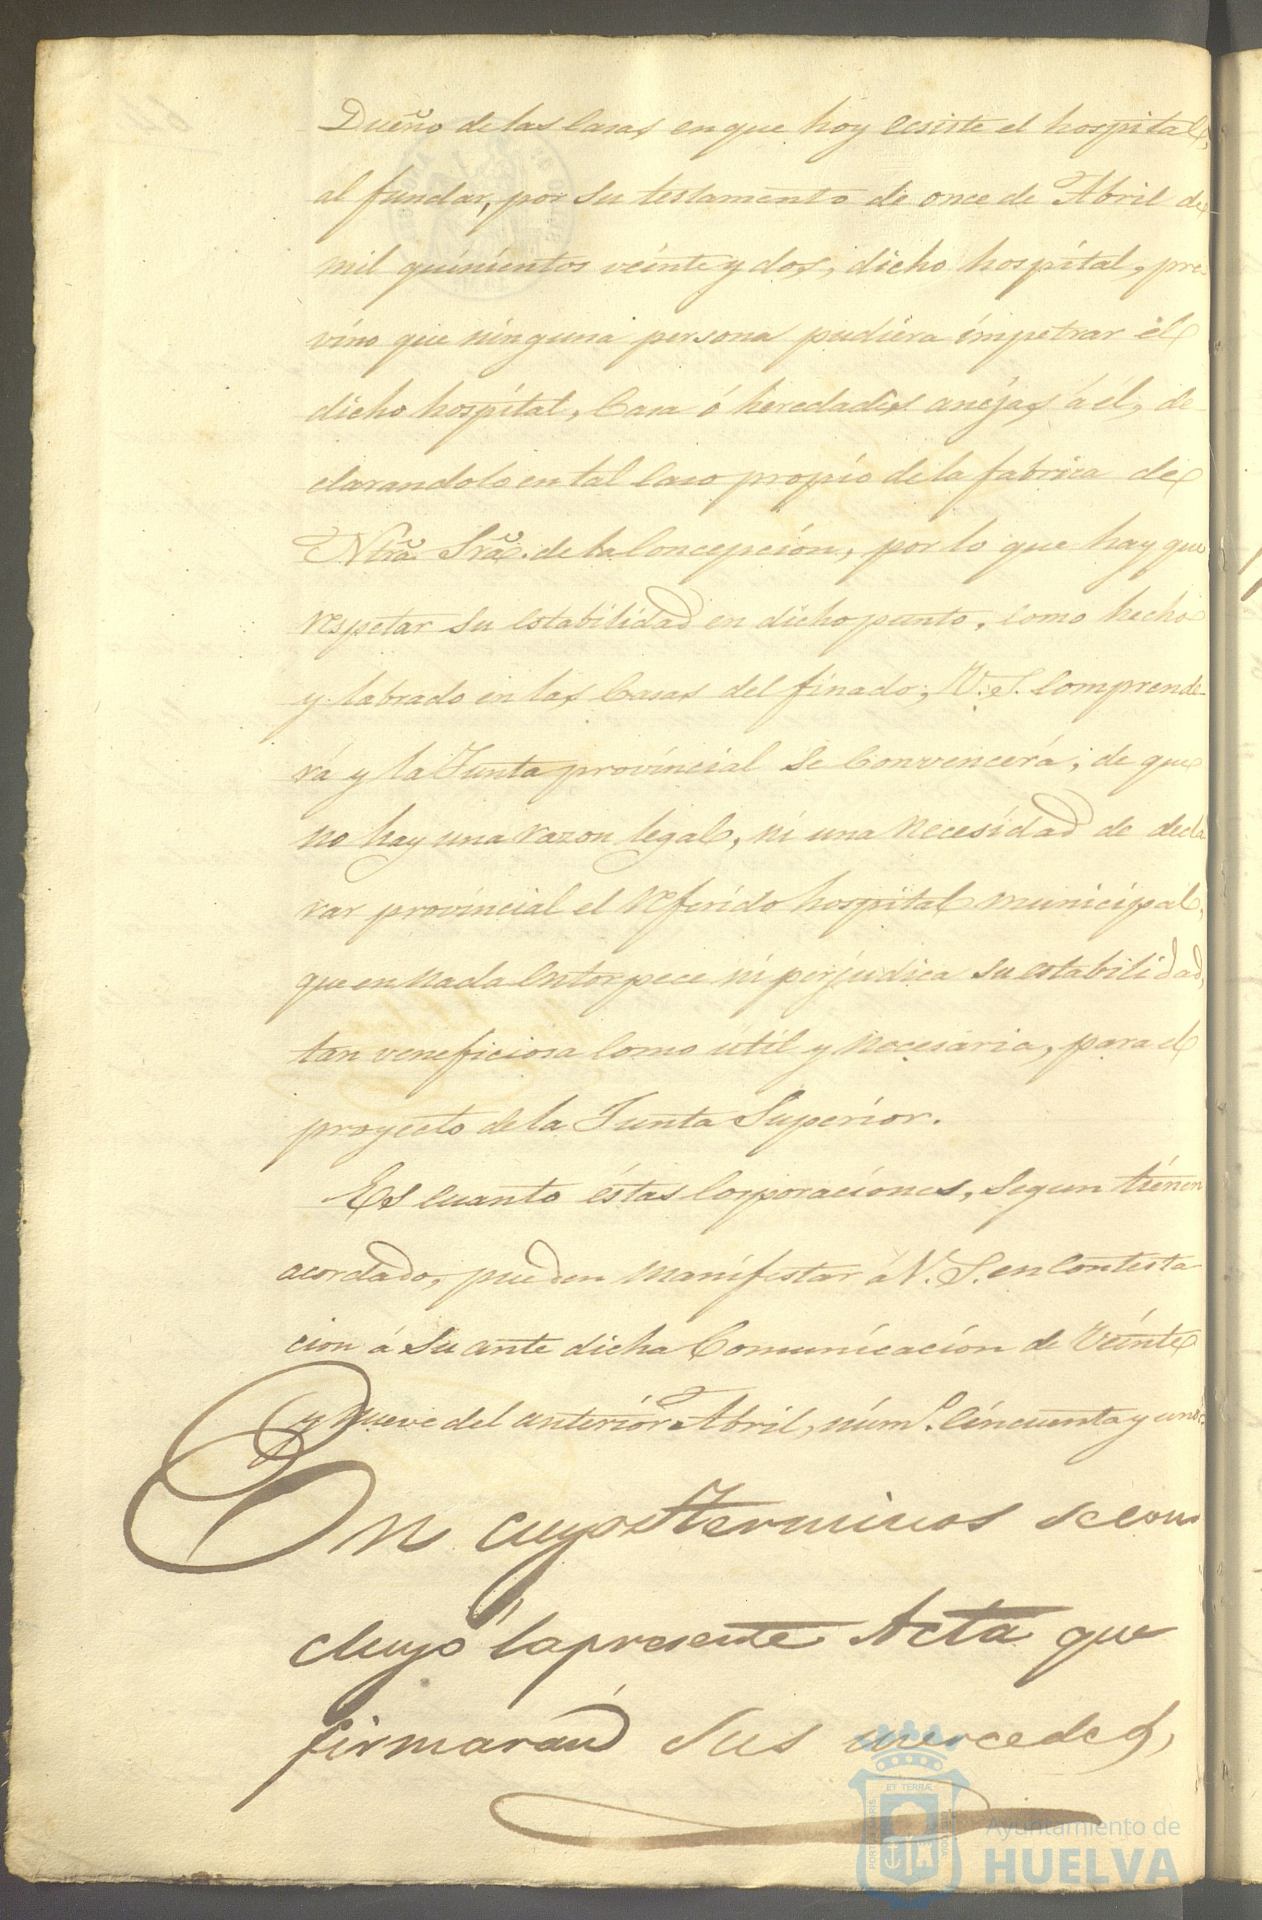 Dueño de las Casas en que hoy ecsiste el hospital,
al fundar, por su testamento de once de Abril de
mil quinientos veinte y dos, dicho hospital, pre
vino que ninguna persona pudiera impetrar el
dicho hospital, Casa ó heredades anéjas á él, de-
clarandolo en tal Caso propio de la fabrica de
Ntra. Sra. de la Concepcion, por lo que hay que
respetar su estabilidad en dicho punto, como hecho
y labrado en las Casas del finado; V. S. Comprende-
rá y la Junta provincial se Convencerá, de que
no hay una razon legal, ni una necesidad de decla
rar provincial el referido hospital municipal,
que en nada entorpece ni perjudica su estabilidad,
tan veneficiosa como útil y necesaria, para el
proyecto de la Junta Superior.
Es cuanto éstas Corporaciones, segun tiénen
acordado, pueden manifestar á V. S. en Contesta
cion á su ante dicha Comunicación de Veinte
y nueve del anterior Abril, núm.º Cincuenta y uno.
En cuyos terminos se con
cluyó la presente Acta que
firmarán sus mercedes,
ET TERRÆ
Ayuntamiento de
HUELVA